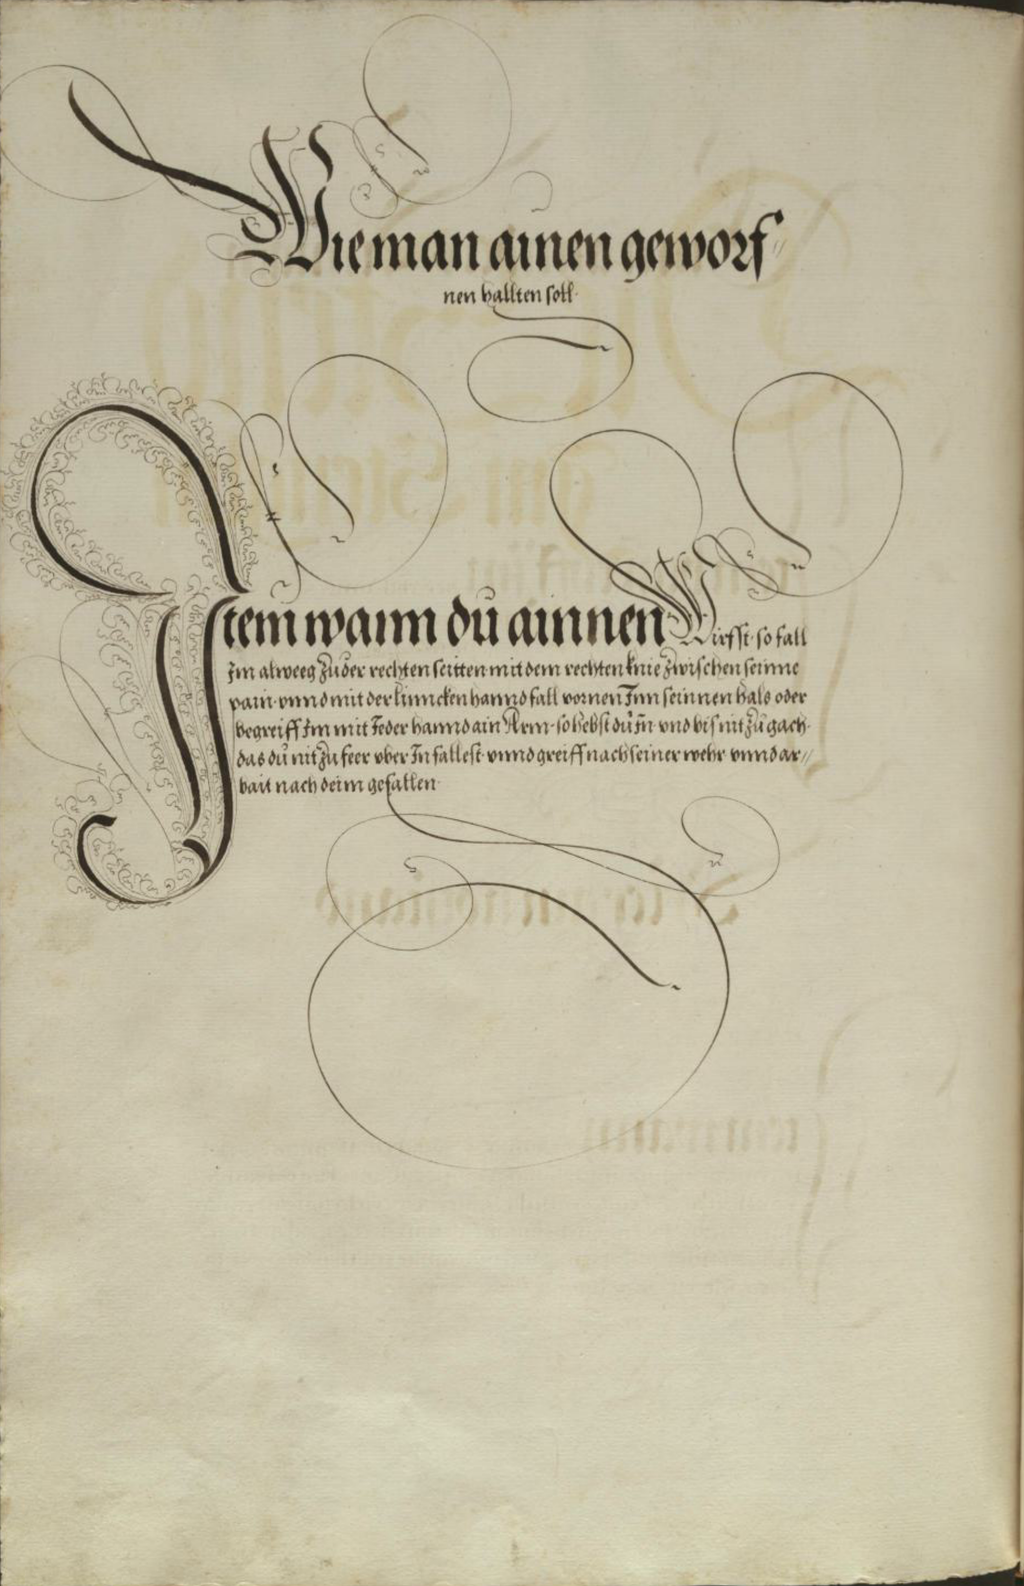 Wie man ainen geworf//
nen hallten soll.
Item wann dŭ ainnen Wirfst. so fall
Im alweeg zŭ der rechten seitten. mit dem rechten knie zwischen seinne
pain. vnnd mit der linncken hannd fall vornen Inn seinnen hals oder
begreiff Im mit Jeder hannd ain Arm. so hebst dŭ In. vnd bis nit zŭ gach.
das dŭ nit zŭ feer vber In fallest. vnnd greiff nach seiner wehr vnnd ar//
bait nach deim gefallen.